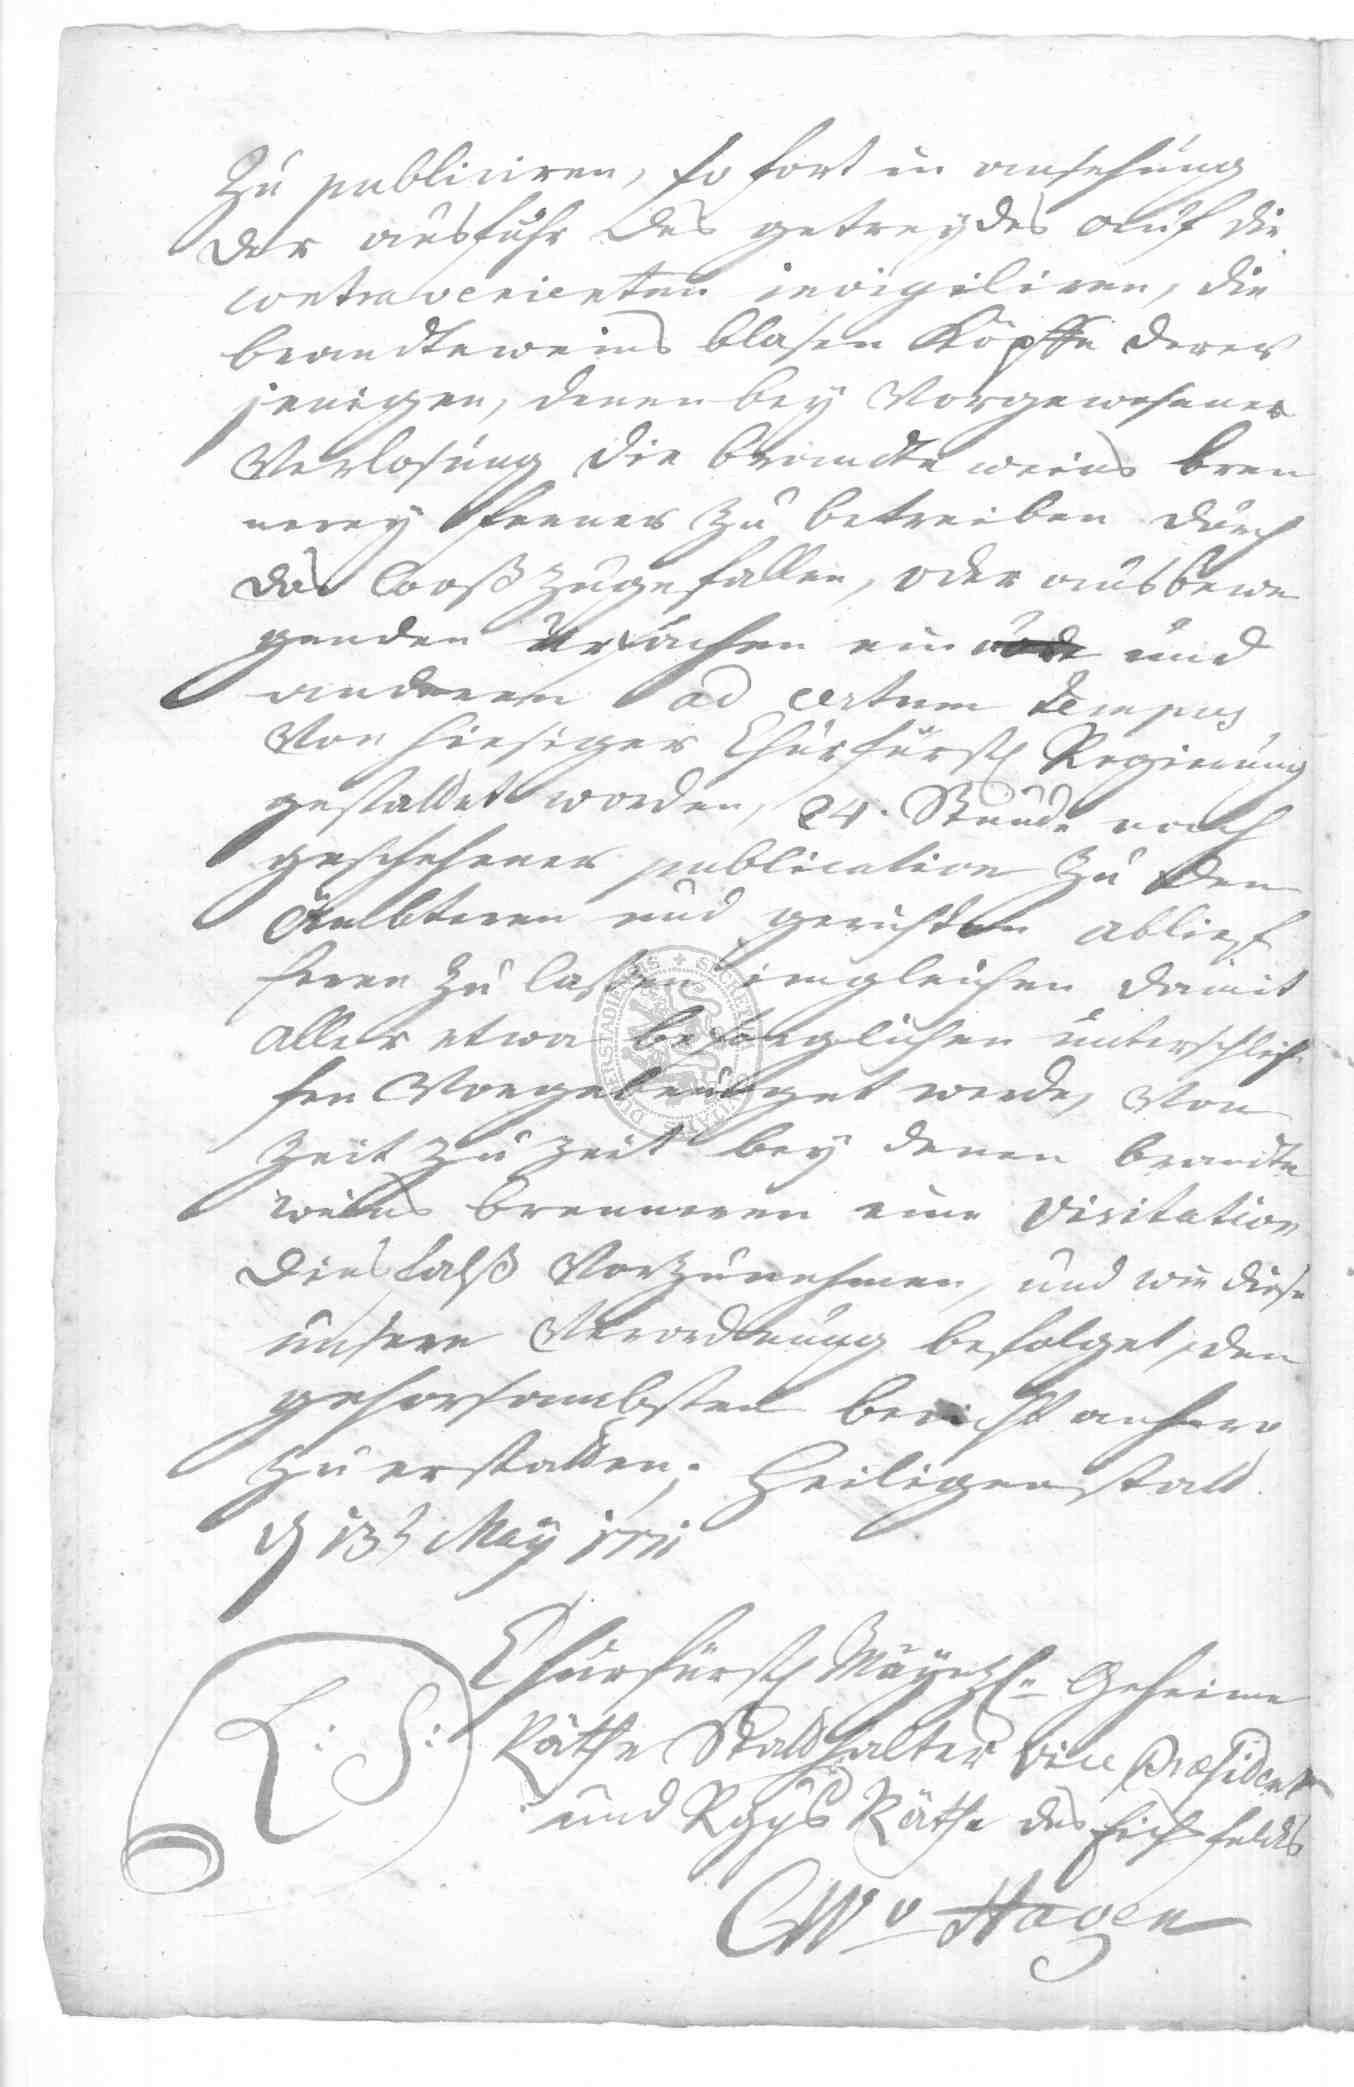 Zu publiciren, so fort in ansehung
der ausfuhr des getreydes auf die
contravenienten invigiliren, die
brandteweins blasen Köpffe derer
jenigen, denen bey Vorgewesener
Verlosung die brandte weins bren
nerey ferner zu betreiben durch
das Looß zugefallen, oder aus bewe
genden Ursachen ein und
anderen ad certum tempus
Von hiesiger Churfürstl Regierung
gestattet worden, 24. Stunde nach
geschehener publication zu den
Ämbteren und gerichten ablief
feren zu lassen imgleichen damit
aller etwa besorglichen unterschleif
fen Vorgebeuget werde, Von
Zeit zu Zeit bey denen brandte
weins brenneren eine Visitation
diesfalß Vorzunehmen, und wie diese
unsere Verordnung befolget, den
gehorsambsten bericht anhero
zu erstatten; Heiligenstadt
d 13t May 1771
Churfürstl Mayntzl. Geheime
Räthe Statthalter Vice Præsident
L: S:
und Rggs Räthe des Eichsfeldts
CW v Hagen
SECRETUM CIVITATIS DUDERSTADIENSIS